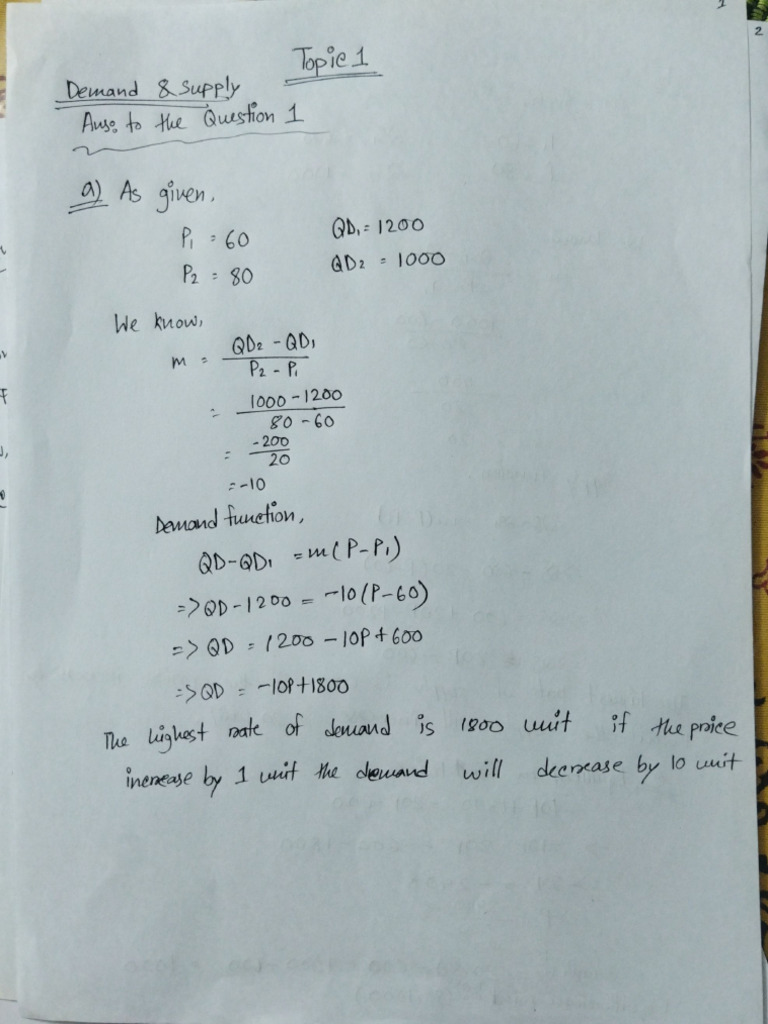 1
2
Topic 1
Demand & Supply
Ans: to the Question 1
a) As given,
P1 = 60 QD1 = 1200
P2 = 80 QD2 = 1000
We know,
m = QD2 - QD1 / P2 - P1
= 1000 - 1200 / 80 - 60
= -200 / 20
= -10
Demand function,
QD - QD1 = m(P - P1)
=> QD - 1200 = -10(P - 60)
=> QD = 1200 - 10P + 600
=> QD = -10P + 1800
The highest rate of demand is 1800 unit if the price
increase by 1 unit the demand will decrease by 10 unit